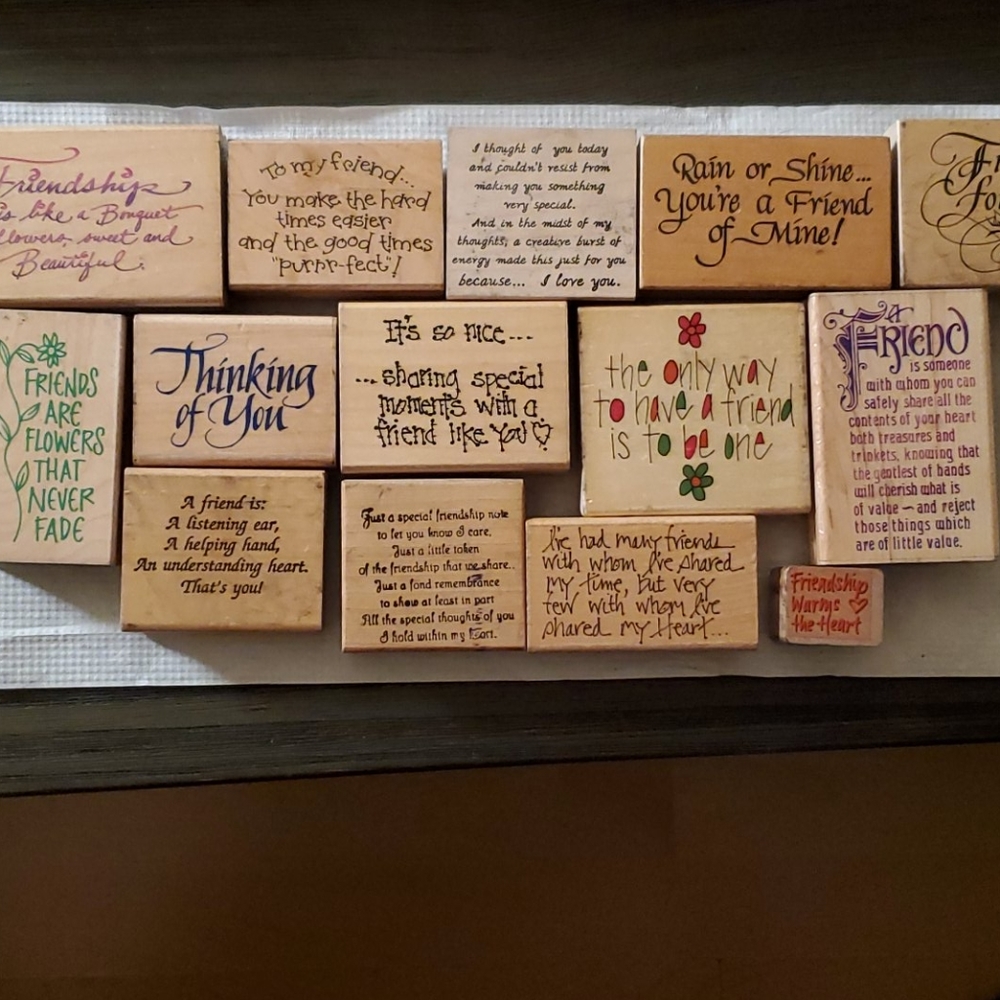 Friendship
is like a Bouquet
flowers, sweet and
Beautiful.
To my friend...
You make the hard
times easier
and the good times
"purrr-fect"!
I thought of you today
and couldn't resist from
making you something
very special.
And in the midst of my
thoughts, a creative burst of
energy made this just for you
because... I love you.
Rain or Shine...
You're a Friend
of Mine!
FRIENDS
ARE
FLOWERS
THAT
NEVER
FADE
Thinking
of You
It's so nice...
...sharing special
moments with a
friend like You
the only way
to have a friend
is to be one
A
FRIEND
is someone
with whom you can
safely share all the
contents of your heart
both treasures and
trinkets, knowing that
the gentlest of hands
will cherish what is
of value — and reject
those things which
are of little value.
A friend is:
A listening ear,
A helping hand,
An understanding heart.
That's you!
Just a special friendship note
to let you know I care.
Just a little token
of the friendship that we share..
Just a fond remembrance
to show at least in part
All the special thoughts of you
I hold within my heart.
I've had many friends
with whom I've shared
my time, but very
few with whom I've
shared my Heart...
Friendship
Warms
the Heart